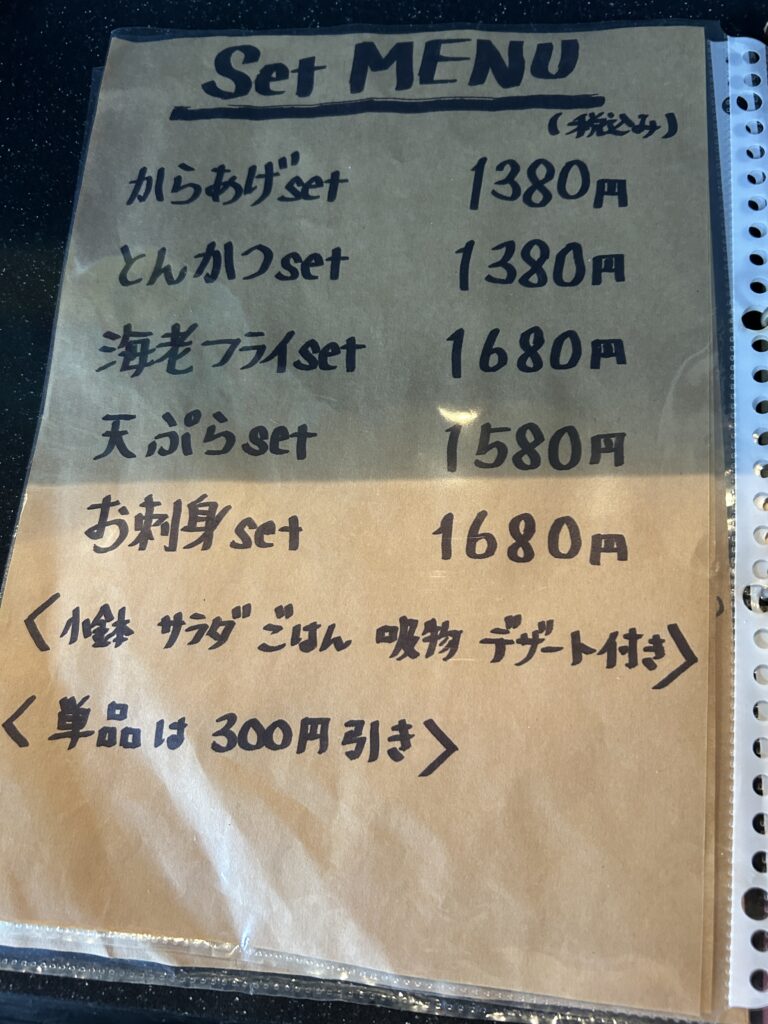 Set MENU
(税込み)
からあげset 1380円
とんかつset 1380円
海老フライset 1680円
天ぷらset 1580円
お刺身set 1680円
〈小鉢 サラダ ごはん 吸物 デザート付き〉
〈単品は 300円引き〉